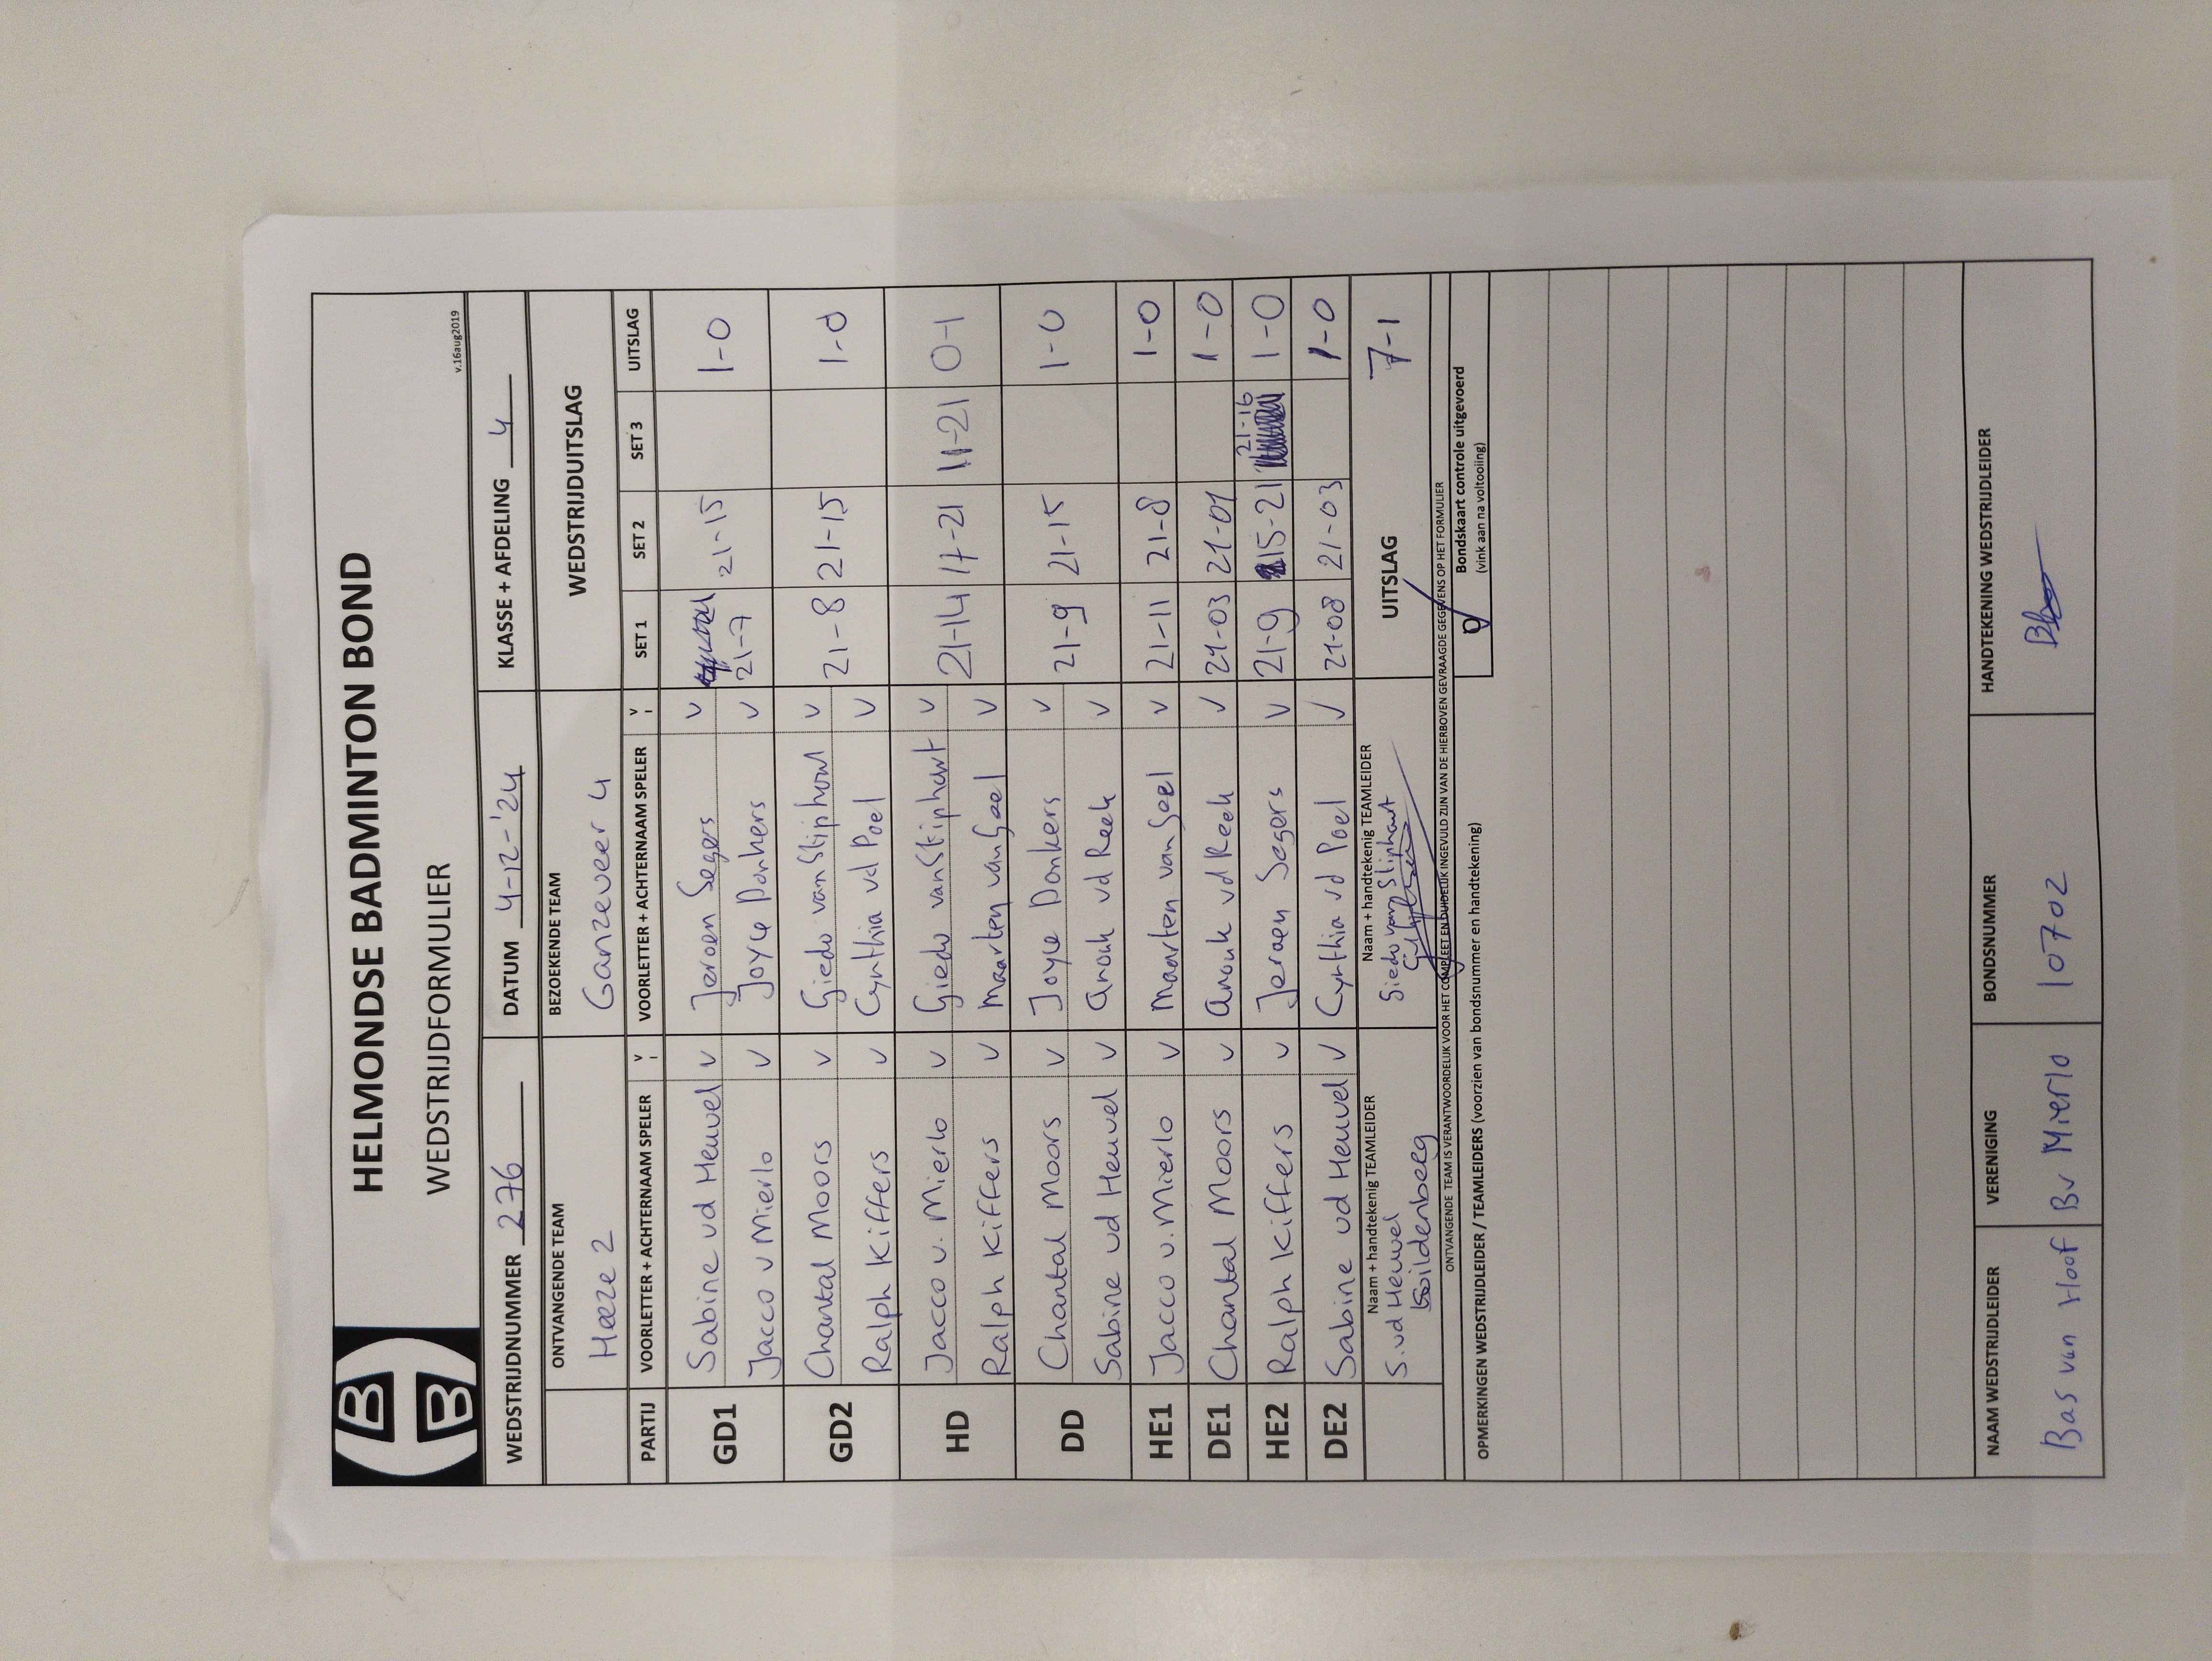 HELMONDSE BADMINTON BOND
WEDSTRIJDFORMULIER
v.16aug2019
WEDSTRIJDNUMMER 276 DATUM 4-12-'24 KLASSE + AFDELING 4
ONTVANGENDE TEAM BEZOEKENDE TEAM WEDSTRIJDUITSLAG
Heeze 2 Ganzeveer 4
PARTIJ VOORLETTER + ACHTERNAAM SPELER V VOORLETTER + ACHTERNAAM SPELER V SET 1 SET 2 SET 3 UITSLAG
GD1 Sabine vd Heuvel v Jeroen Segers v 21-7 21-15 1-0
Jacco v Mierlo v Joyce Donkers v
GD2 Chantal Moors v Giedo van Stiphout v 21-8 21-15 1-0
Ralph Kiffers v Cynthia vd Poel v
HD Jacco v. Mierlo v Giedo van Stiphout v 21-14 17-21 11-21 0-1
Ralph Kiffers v Maarten van Goel v
DD Chantal Moors v Joyce Donkers v 21-9 21-15 1-0
Sabine vd Heuvel v Anouk vd Reek v
HE1 Jacco v. Mierlo v Maarten van Goel v 21-11 21-8 1-0
DE1 Chantal Moors v Anouk vd Reek v 21-03 21-01 1-0
HE2 Ralph Kiffers v Jeroen Segers v 21-9 15-21 21-16 1-0
DE2 Sabine vd Heuvel v Cynthia vd Poel v 21-08 21-03 1-0
Naam + handtekenig TEAMLEIDER Naam + handtekenig TEAMLEIDER UITSLAG 7-1
S. vd Heuvel Giedo van Stiphout
ONTVANGENDE TEAM IS VERANTWOORDELIJK VOOR HET COMPLEET EN DUIDELIJK INGEVULD ZIJN VAN DE HIERBOVEN GEVRAAGDE GEGEVENS OP HET FORMULIER
Bondskaart controle uitgevoerd
(vink aan na voltooiing)
OPMERKINGEN WEDSTRIJDLEIDER / TEAMLEIDERS (voorzien van bondsnummer en handtekening)
NAAM WEDSTRIJDLEIDER VERENIGING BONDSNUMMER HANDTEKENING WEDSTRIJDLEIDER
Bas van Hoof BV Mierlo 10702